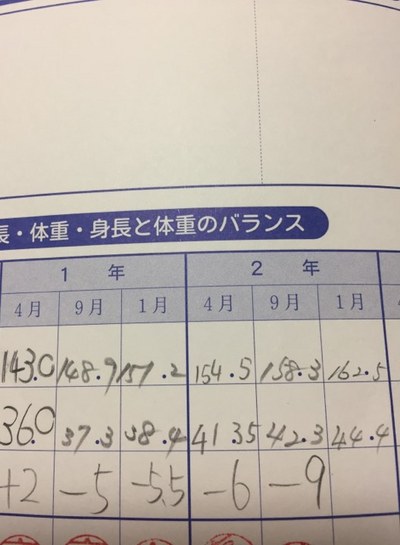 長・体重・身長と体重のバランス
1年 2年
4月 9月 1月 4月 9月 1月
143.0 148.9 151.2 154.5 158.3 162.5
36.0 37.3 38.4 41.35 42.3 44.4
+2 -5 -5.5 -6 -9